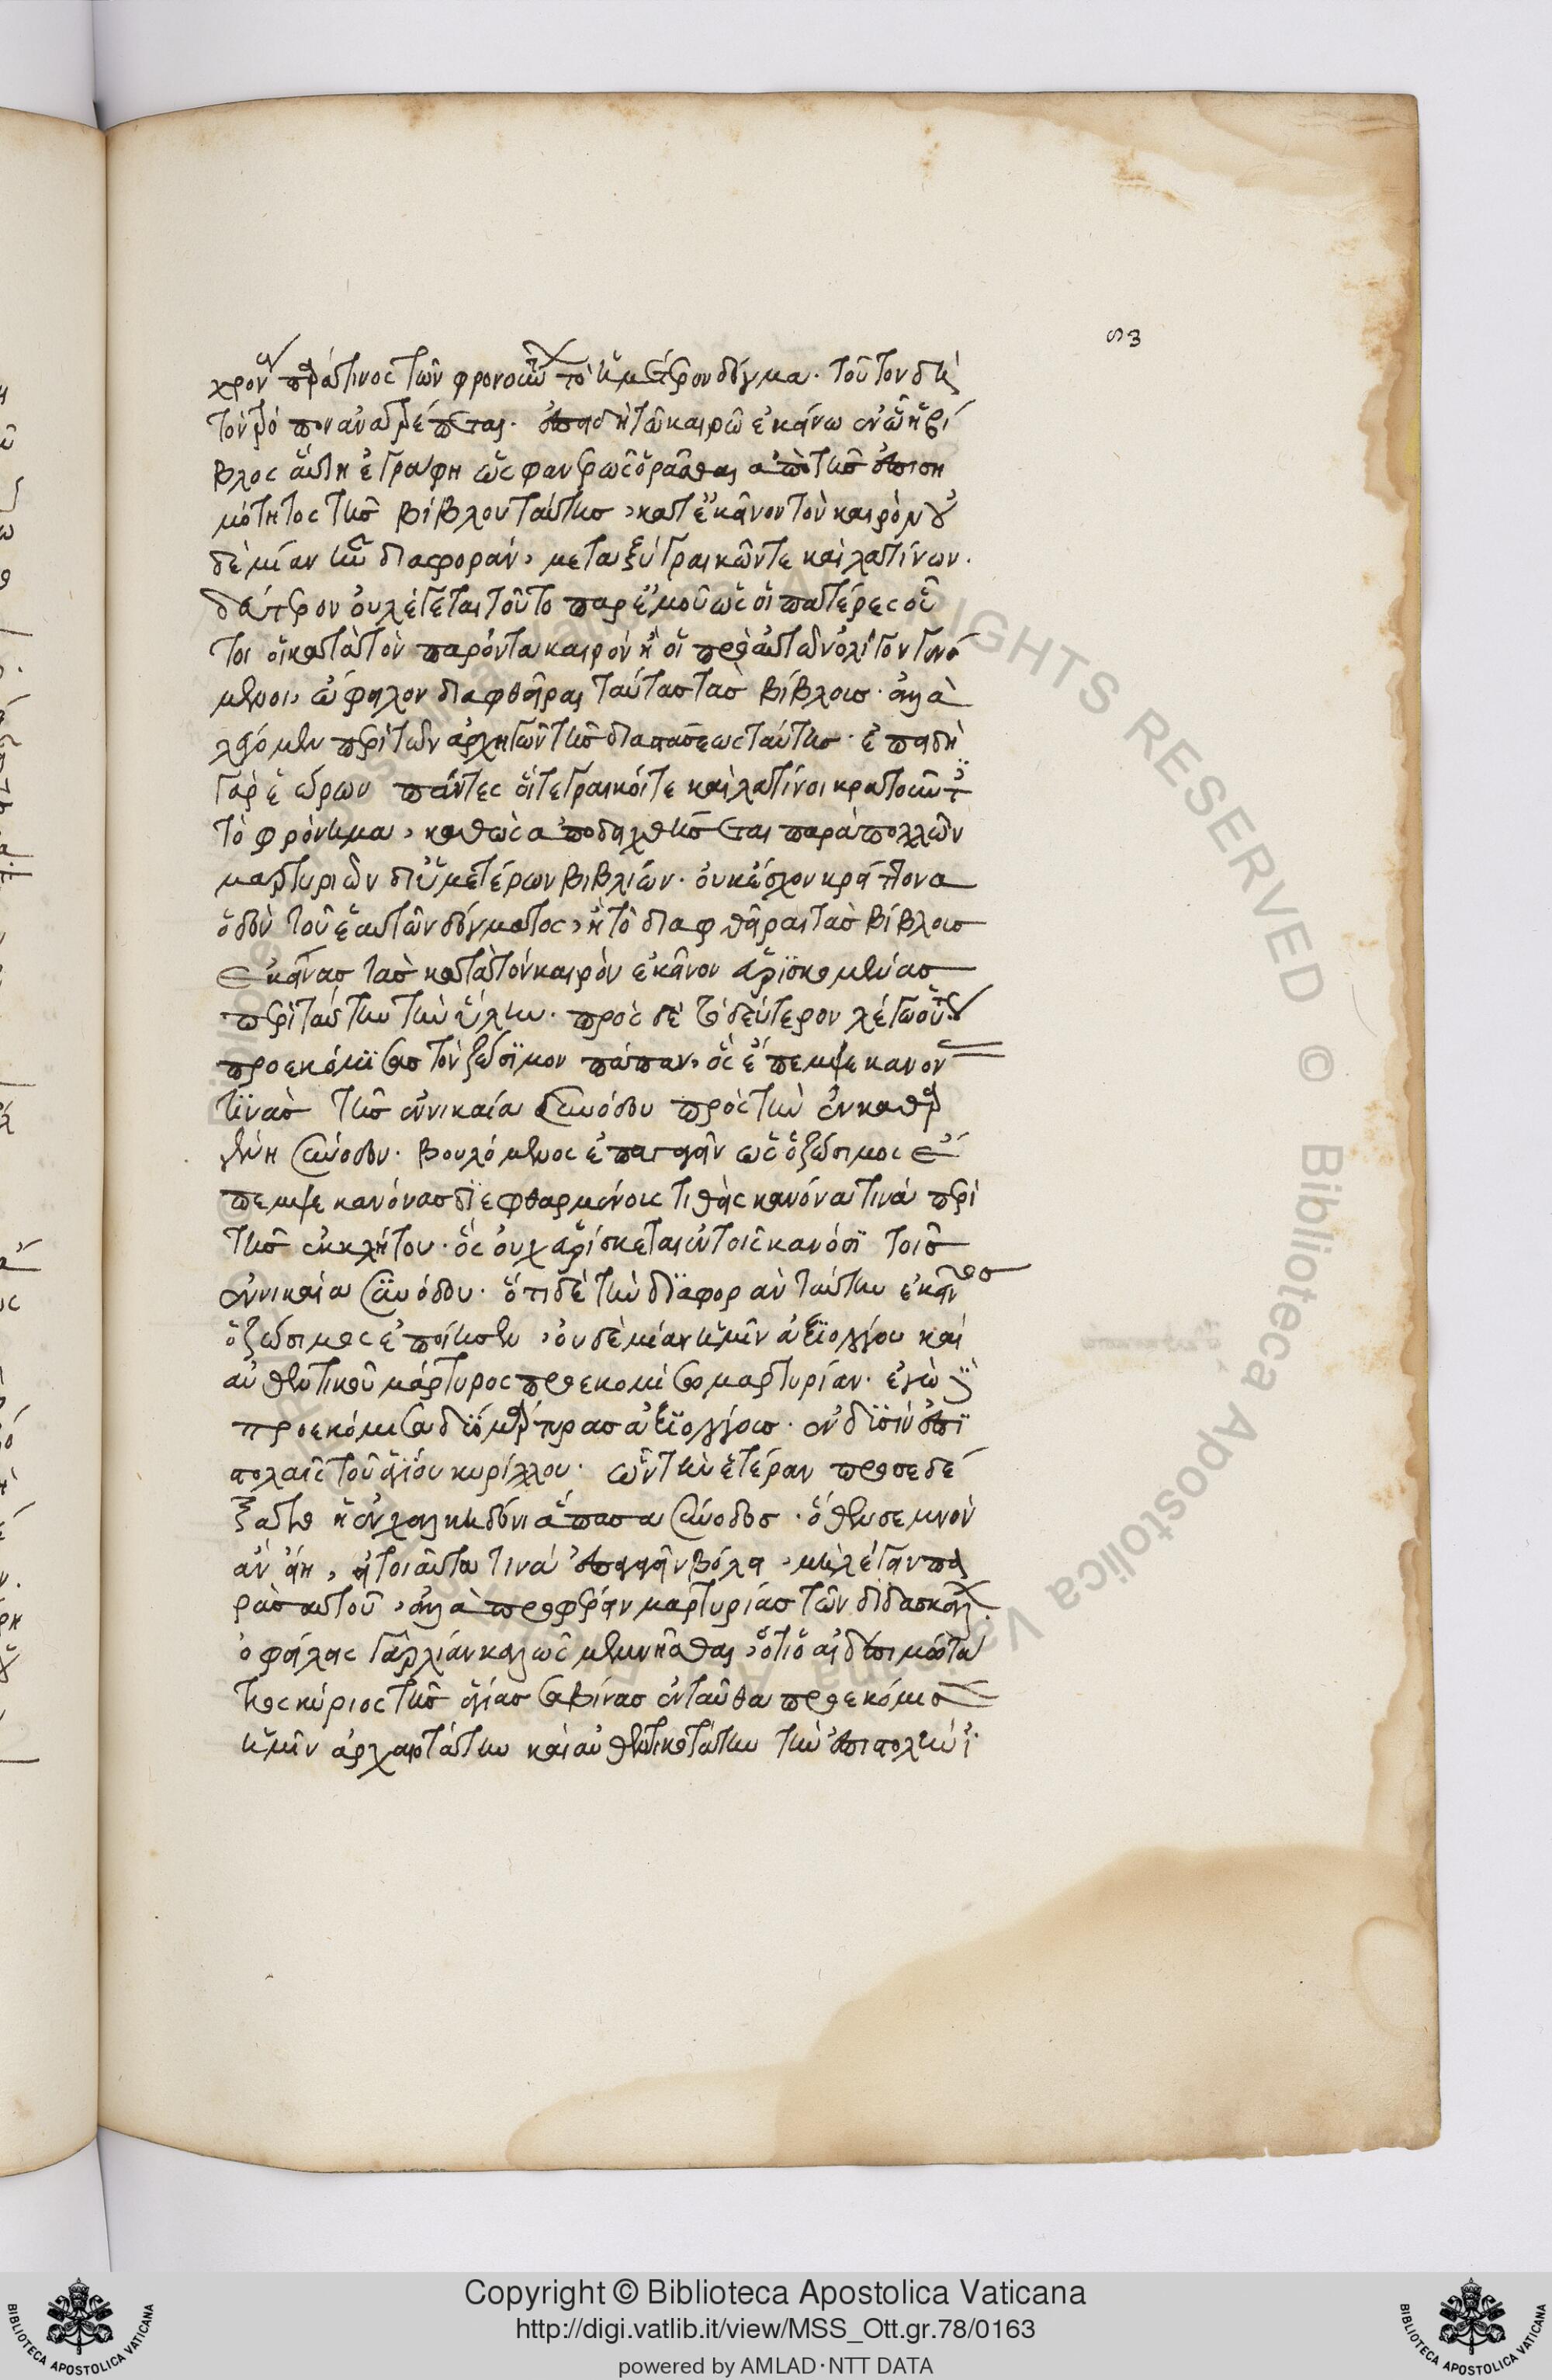 93
χρον παρά τινος τῶν φρονούντων τὸ ἡμέτερον δόγμα. τοῦτον δὴ
τὸν τρόπον ἀνατρέπεται. ἐπειδὴ τῶ καιρῶ ἐκείνω ἐν ὧ ἡ βί
βλος αὕτη ἐγράφη ὡς φανερῶς ὁρᾶσθαι ἀπὸ τῆς ἐπιση
μότητος τῆς βίβλου ταύτης, κατ' ἐκεῖνον τὸν καιρὸν οὐ
δὲ μίαν ἦν διαφοράν, μεταξὺ γραικῶν τε καὶ λατίνων.
δεύτερον οὐ λέγεται τοῦτο παρ' ἐμοῦ ὡς οἱ πατέρες οὗ
τοι οἱ κατὰ τὸν παρόντα καιρὸν ἢ οἱ πρὸ αὐτῶν ὀλίγον γενό
μενοι, ὤφειλον διαφθεῖραι ταύτας τὰς βίβλους. ἀλλὰ
λέγομεν περὶ τῶν ἀρχηγῶν τῆς διαστάσεως ταύτης. ἐπειδὴ
γὰρ ἑώρων πάντες οἵ τε γραικοί τε καὶ λατίνοι κρατοῦντ
τὸ φρόνημα, καθὼς ἀποδειχθήσεται παρὰ πολλῶν
μαρτυριῶν δι' ὑμετέρων βιβλίων. οὐκ ἔσχον κρείττονα
ὁδὸν τοῦ ἑαυτῶν δόγματος, ἢ τὸ διαφθεῖραι τὰς βίβλους
ἐκείνας τὰς κατὰ τὸν καιρὸν ἐκεῖνον εὑρισκομένας
περὶ ταύτην τὴν ὕλην. πρὸς δὲ τὸ δεύτερον λέγω οὕτως
προεκόμισας τὸν ζώσιμον πάπαν, ὃς ἔπεμψε κανον
τινὰς τῆς ἐν νικαία συνόδου πρὸς τὴν ἐν καθαρ
γένη σύνοδον. βουλόμενος εἰπεῖν ὡς ὁ ζώσιμος ἔ
πεμψε κανόνας διεφθαρμένους τιθεὶς κανόνα τινὰ περὶ
τῆς ἐκκλήτου. ὃς οὐχ εὑρίσκεται ἐν τοῖς κανόσι τοῖς
ἐν νικαία συνόδου. ὅτι δὲ τὴν διαφορὰν ταύτην ἐκεῖνος
ὁ ζώσιμος ἐποίησεν, οὐδὲ μίαν ἡμῖν ἀξιολόγου καὶ
αὐθεντικοῦ μάρτυρος προεκόμισω μαρτυρίαν. ἐγὼ δὲ
προεκόμισα δύο μάρτυρας ἀξιολόγους. ἐν δυσὶν ἐπι
στολαῖς τοῦ ἁγίου κυρίλλου. ὧν τὴν ἑτέραν προσεδέ
ξατο ἡ ἐν χαλκηδόνι ἅπασα σύνοδος. ὅθεν σεμνὸν
ἂν εἴη, εἰ τοιαῦτα τινὰ εἰπεῖν βούλει, μὴ λέγειν πα
ρὰ σαυτοῦ, ἀλλὰ προφέρειν μαρτυρίας τῶν διδασκάλων.
ὀφείλεις γὰρ λίαν καλῶς μεμνῆσθαι, ὅτι ὁ αἰδεσιμώτα
τος κύριος τῆς ἁγίας σαβίνας ἐνταῦθα προεκόμισεν
ἡμῖν ἀρχαιοτάτην καὶ αὐθεντικωτάτην τὴν ἐπιστολὴν ἰ
Copyright © Biblioteca Apostolica Vaticana
http://digi.vatlib.it/view/MSS_Ott.gr.78/0163
powered by AMLAD·NTT DATA